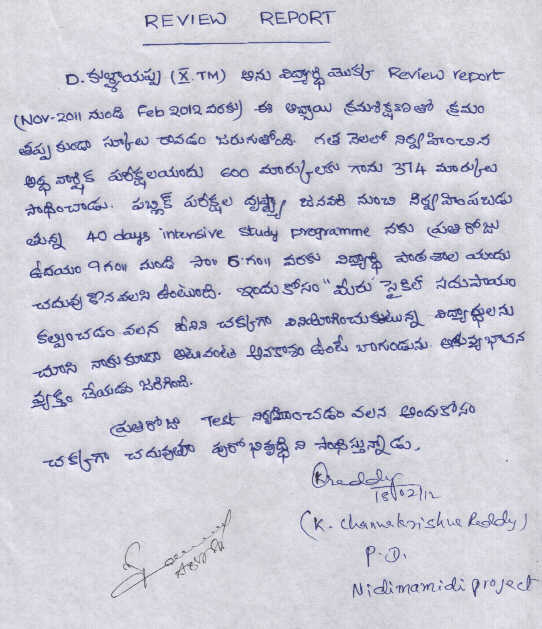 REVIEW REPORT
D. కుళ్ళాయప్ప (X.TM) అను విద్యార్థి యొక్క Review report
(Nov-2011 నుండి Feb 2012 వరకు) ఈ అబ్బాయి క్రమశిక్షణతో క్రమం
తప్పకుండా స్కూలు రావడం జరుగుతోంది. గత నెలలో నిర్వహించిన
అర్ధ వార్షిక పరీక్షలయందు 600 మార్కులకు గాను 374 మార్కులు
సాధించాడు. పబ్లిక్ పరీక్షల దృష్ట్యా జనవరి నుంచి నిర్వహింపబడు
తున్న 40 days intensive study programme నకు ప్రతిరోజు
ఉదయం 9 గం॥ నుండి సా॥ 5 గం॥ వరకు విద్యార్థి పాఠశాల యందు
చదువు కొనవలసి ఉంటుంది. ఇందుకోసం "మీరు" సైకిల్ సదుపాయం
కల్పించడం వలన దీనిని చక్కగా వినియోగించుకుటున్న విద్యార్థులను
చూసి నాకుకూడా అటువంటి అవకాశం ఉంటే బాగుండును అనువు భావన
వ్యక్తం చేయడం జరిగింది.
ప్రతిరోజు Test నిర్వహించడం వలన అందుకోసం
చక్కగా చదువుతూ పురోభివృద్ధిని సాధిస్తున్నాడు.
Kreddy
18/02/12
(K. Channakrishna Reddy)
P.D.
Nidimamidi project